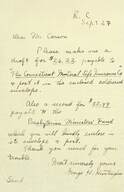 R. C.
Sept. 27
Dear Mr. Carson
Please make me a
draft for $26.33 payable to
The Connecticut Mutual Life Insurance Co
& post it in the enclosed addressed
envelope.
Also a second for $2.99
payable to the
Presbyterian Ministers' Fund
which you will kindly enclose
in envelope & post.
Thank you much for your
trouble.
Most sincerely yours
George H.